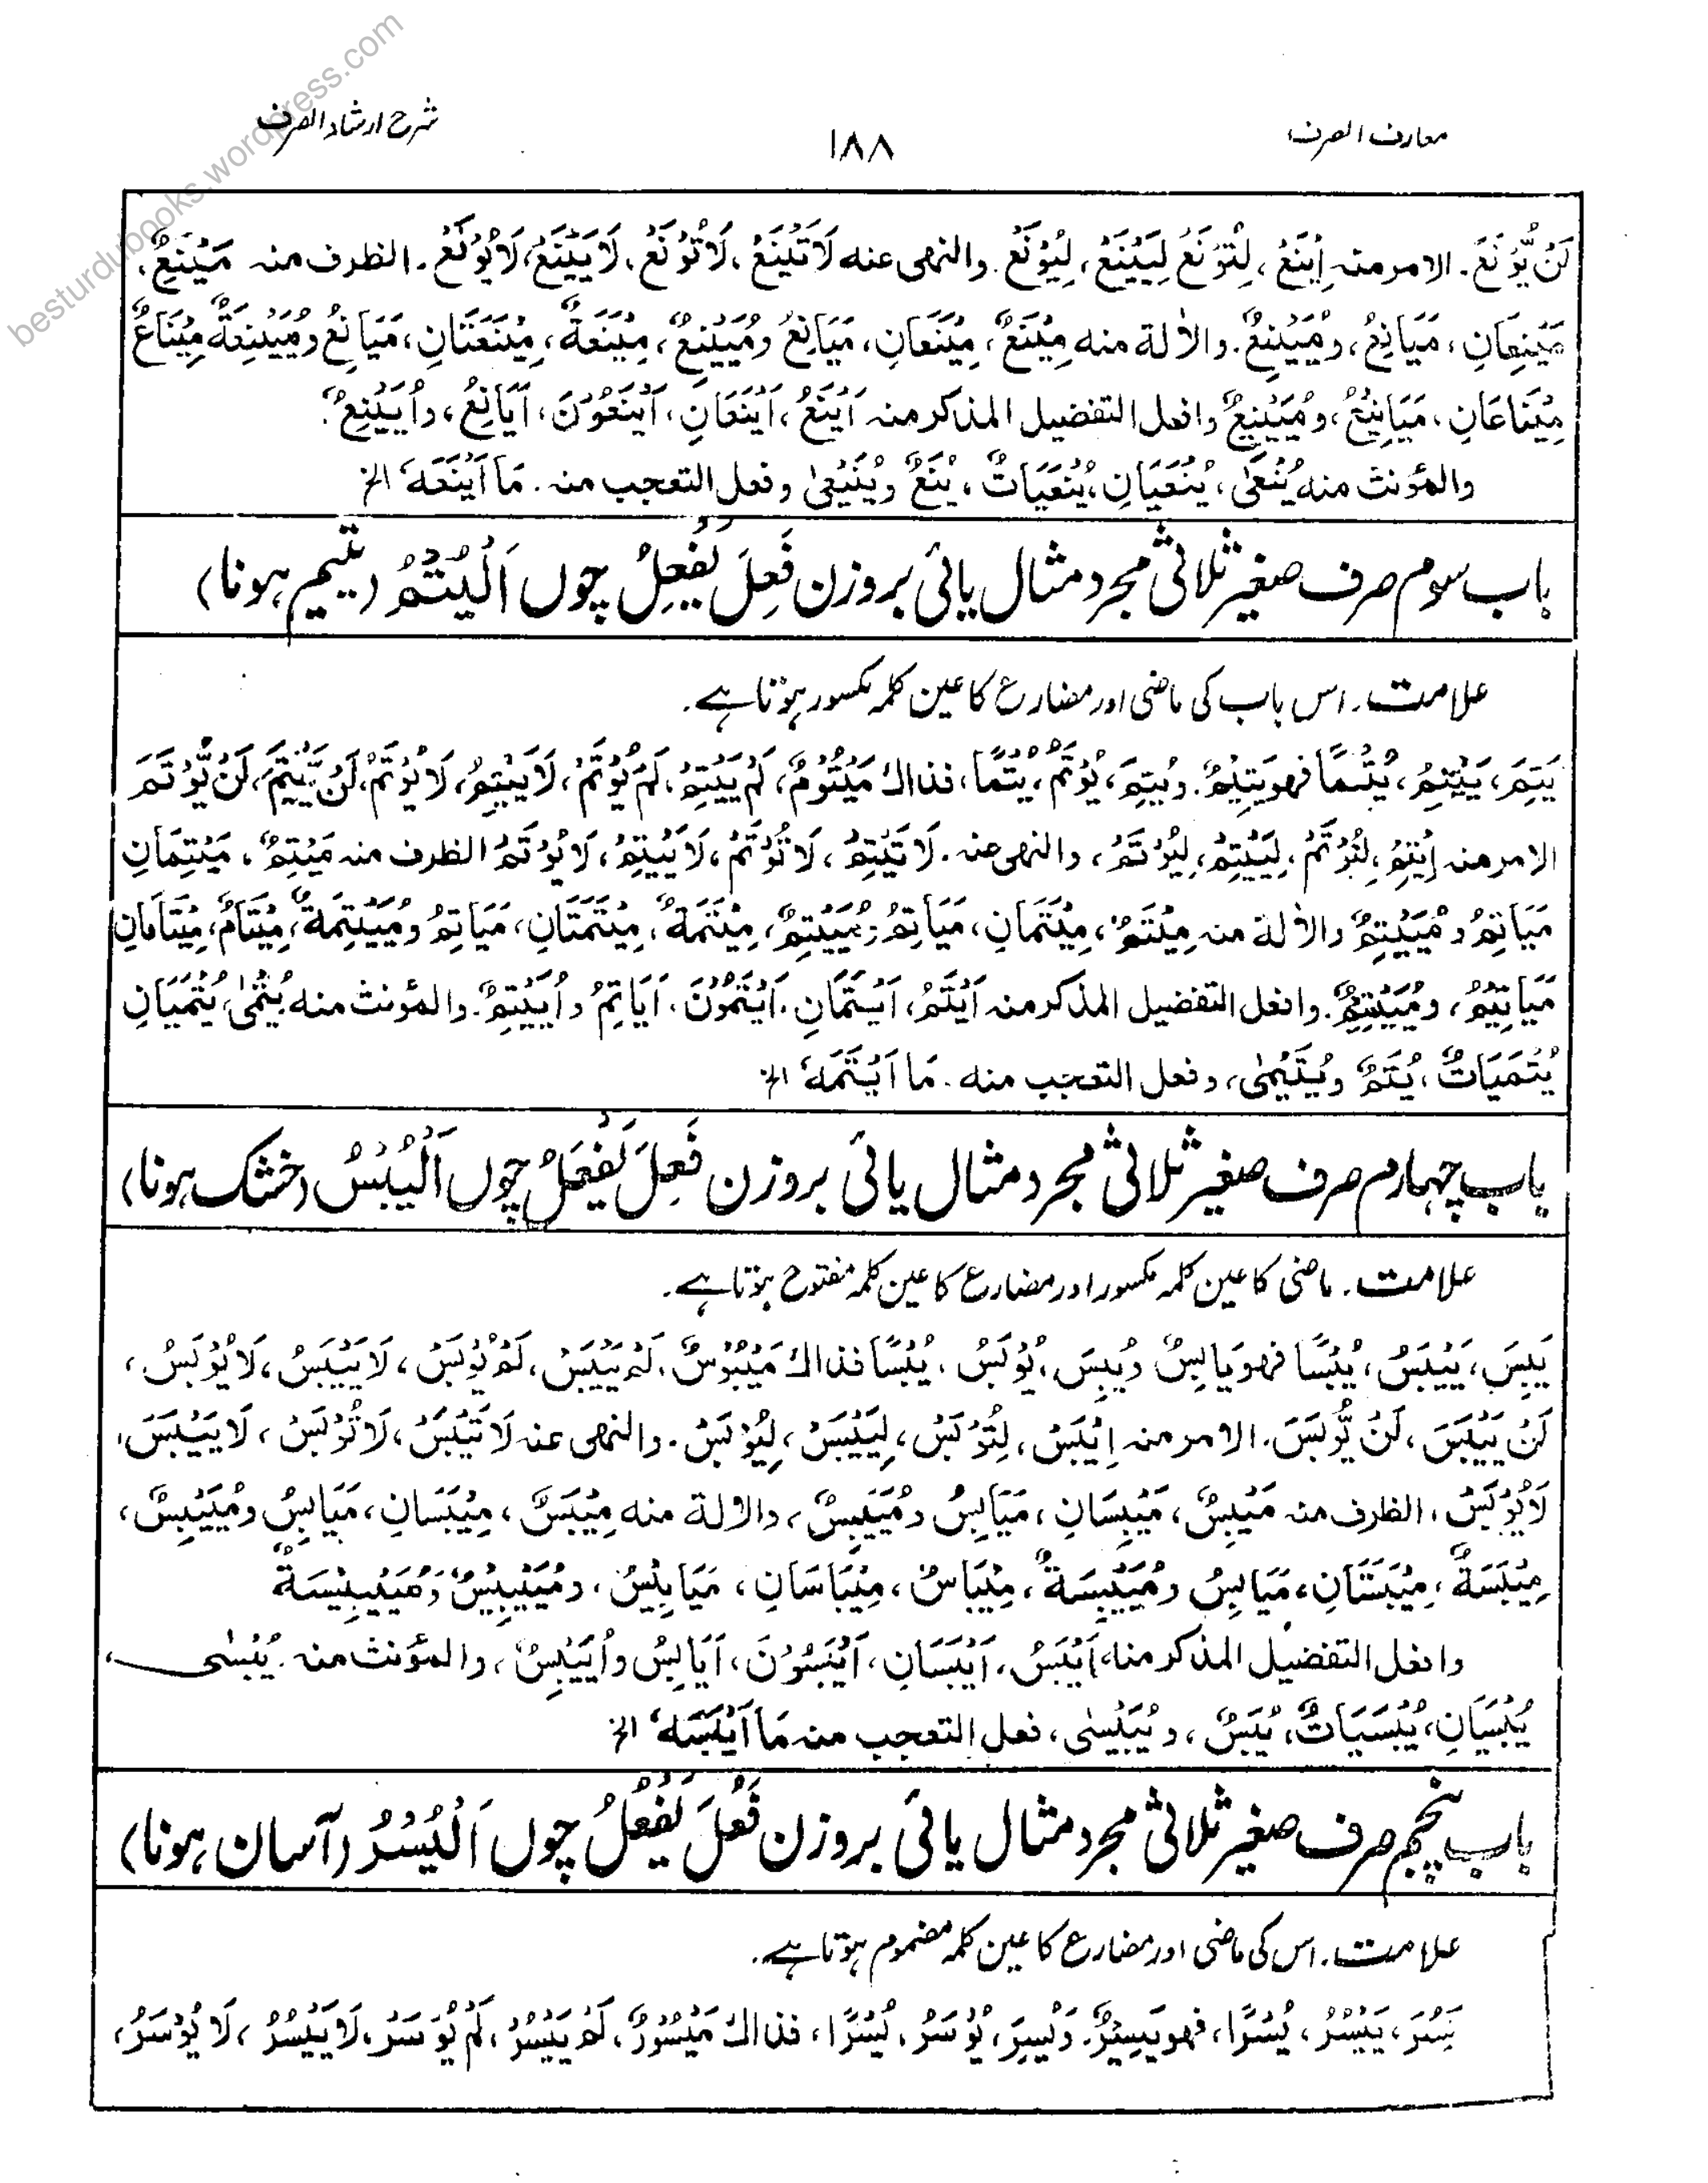 معارف الصرف
۱۸۸
شرح ارشاد الصرف
besturdubooks.wordpress.com
لَنْ يُّوْنَعَ. الامر منہ اِيْنَعْ، لِتُوْنَعْ لِيَيْنَعْ، لِيُوْنَعْ. والنہی عنہ لَاتَيْنَعْ، لَاتُوْنَعْ، لَايَيْنَعْ، لَايُوْنَعْ. الظرف منہ مَيْنِعٌ،
مَيْنِعَانِ، مَيَانِعُ، ومُيَيْنِعٌ. والاٰلة منه مِيْنَعٌ، مِيْنَعَانِ، مَيَانِعُ ومُيَيْنِعٌ، مِيْنَعَةٌ، مِيْنَعَتَانِ، مَيَانِعُ ومُيَيْنِعَةٌ مِيْنَاعٌ
مِيْنَاعَانِ، مَيَانِيْعُ، ومُيَيْنِيْعٌ وافعل التفضيل المذكر منہ اَيْنَعُ، اَيْنَعَانِ، اَيْنَعُوْنَ، اَيَانِعُ، واُيَيْنِعٌ.
والمؤنث منه يُنْعٰى، يُنْعَيَانِ، يُنْعَيَاتٌ، يُنَعٌ ويُنَيْعٰى وفعل التعجب منہ. مَا اَيْنَعَهٗ الخ
باب سوم صرف صغیر ثلاثی مجرد مثال یائی بروزن فَعِلَ يَفْعِلُ چوں اَلْيُتْمُ (یتیم ہونا)
علامت. اس باب کی ماضی اور مضارع کا عین کلمہ مکسور ہوتا ہے.
يَتِمَ، يَيْتِمُ، يُتْمًا فهو يَتِيْمٌ. ويُتِمَ، يُوْتَمُ، يُتْمًا، فذاك مَيْتُوْمٌ، لَمْ يَيْتِمْ، لَمْ يُوْتَمْ، لَايَيْتِمُ، لَايُوْتَمُ، لَنْ يَّيْتِمَ، لَنْ يُّوْتَمَ
الامر منہ اِيْتِمْ، لِتُوْتَمْ، لِيَيْتِمْ، لِيُوْتَمْ، والنہی عنہ. لَاتَيْتِمْ، لَاتُوْتَمْ، لَايَيْتِمْ، لَايُوْتَمْ الظرف منہ مَيْتِمٌ، مَيْتِمَانِ
مَيَاتِمُ ومُيَيْتِمٌ والاٰلة منہ مِيْتَمٌ، مِيْتَمَانِ، مَيَاتِمُ ومُيَيْتِمٌ، مِيْتَمَةٌ، مِيْتَمَتَانِ، مَيَاتِمُ ومُيَيْتِمَةٌ، مِيْتَامٌ، مِيْتَامَانِ
مَيَاتِيْمُ، ومُيَيْتِيْمٌ. وافعل التفضيل المذكر منہ اَيْتَمُ، اَيْتَمَانِ، اَيْتَمُوْنَ، اَيَاتِمُ واُيَيْتِمٌ. والمؤنث منه يُتْمٰى، يُتْمَيَانِ
يُتْمَيَاتٌ، يُتَمٌ ويُتَيْمٰى، وفعل التعجب منه. مَا اَيْتَمَهٗ الخ
باب چہارم صرف صغیر ثلاثی مجرد مثال یائی بروزن فَعِلَ يَفْعَلُ چوں اَلْيُبْسُ (خشک ہونا)
علامت. ماضی کا عین کلمہ مکسور اور مضارع کا عین کلمہ مفتوح ہوتا ہے.
يَبِسَ، يَيْبَسُ، يُبْسًا فهو يَابِسٌ ويُبِسَ، يُوْبَسُ، يُبْسًا فذاك مَيْبُوْسٌ، لَمْ يَيْبَسْ، لَمْ يُوْبَسْ، لَايَيْبَسُ، لَايُوْبَسُ،
لَنْ يَيْبَسَ، لَنْ يُّوْبَسَ. الامر منہ اِيْبَسْ، لِتُوْبَسْ، لِيَيْبَسْ، لِيُوْبَسْ. والنہی عنہ لَاتَيْبَسْ، لَاتُوْبَسْ، لَايَيْبَسْ،
لَايُوْبَسْ، الظرف منہ مَيْبِسٌ، مَيْبِسَانِ، مَيَابِسُ ومُيَيْبِسٌ، والاٰلة منه مِيْبَسٌ، مِيْبَسَانِ، مَيَابِسُ ومُيَيْبِسٌ،
مِيْبَسَةٌ، مِيْبَسَتَانِ، مَيَابِسُ ومُيَيْبِسَةٌ، مِيْبَاسٌ، مِيْبَاسَانِ، مَيَابِيْسُ، ومُيَيْبِيْسٌ ومُيَيْبِيْسَةٌ
وافعل التفضيل المذكر منه، اَيْبَسُ، اَيْبَسَانِ، اَيْبَسُوْنَ، اَيَابِسُ واُيَيْبِسٌ، والمؤنث منہ. يُبْسٰى،
يُبْسَيَانِ، يُبْسَيَاتٌ، يُبَسٌ، ويُبَيْسٰى، فعل التعجب منہ مَا اَيْبَسَهٗ الخ
باب پنجم صرف صغیر ثلاثی مجرد مثال یائی بروزن فَعُلَ يَفْعُلُ چوں اَلْيُسْرُ (آسان ہونا)
علامت. اس کی ماضی اور مضارع کا عین کلمہ مضموم ہوتا ہے.
يَسُرَ، يَيْسُرُ، يُسْرًا، فهو يَسِيْرٌ. ويُسِرَ، يُوْسَرُ، يُسْرًا، فذاك مَيْسُوْرٌ، لَمْ يَيْسُرْ، لَمْ يُوْسَرْ، لَايَيْسُرُ، لَايُوْسَرُ،